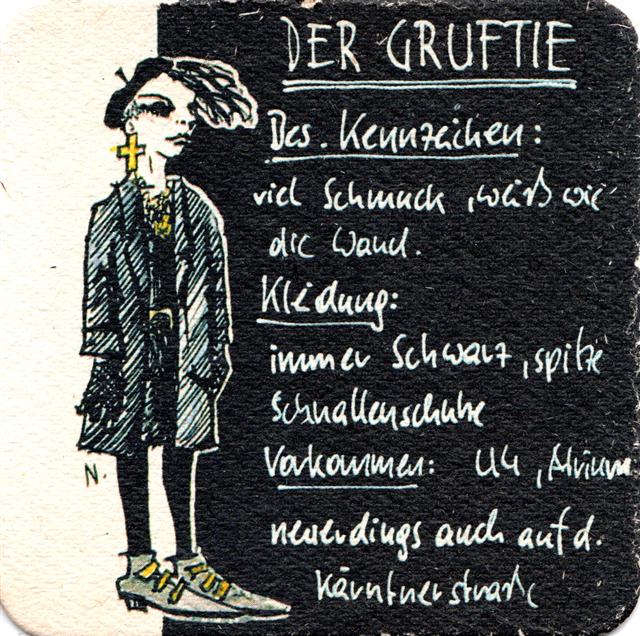 DER GRUFTIE
Bes. Kennzeichen:
viel Schmuck, weiß wie
die Wand.
Kleidung:
immer Schwarz, spitze
Schnallenschuhe
Vorkommen: U4, Atrium
neuerdings auch auf d.
Kärntnerstraße
N.